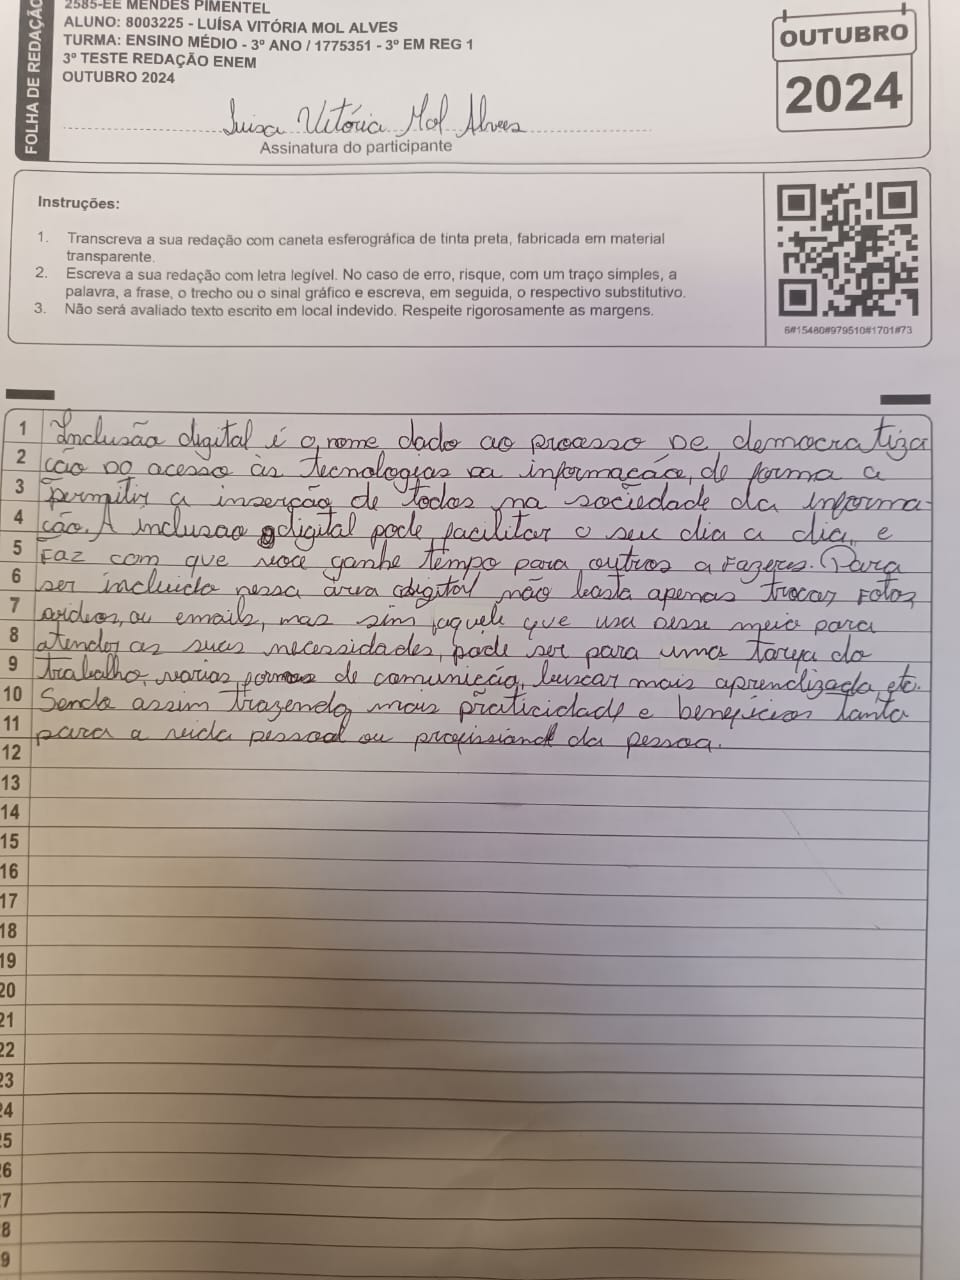 FOLHA DE REDAÇÃO
2585-EE MENDES PIMENTEL
ALUNO: 8003225 - LUÍSA VITÓRIA MOL ALVES
TURMA: ENSINO MÉDIO - 3º ANO / 1775351 - 3º EM REG 1
3º TESTE REDAÇÃO ENEM
OUTUBRO 2024
Luisa Vitória Mol Alves
Assinatura do participante
OUTUBRO
2024
Instruções:
1. Transcreva a sua redação com caneta esferográfica de tinta preta, fabricada em material
transparente.
2. Escreva a sua redação com letra legível. No caso de erro, risque, com um traço simples, a
palavra, a frase, o trecho ou o sinal gráfico e escreva, em seguida, o respectivo substitutivo.
3. Não será avaliado texto escrito em local indevido. Respeite rigorosamente as margens.
6#15480#979510#1701#73
1 Inclusão digital é o nome dado ao processo De democratiza
2 ção Do acesso às tecnologias da informação, de forma a
3 permitir a inserção de todos na sociedade da informa-
4 ção. A inclusao digital pode facilitar o seu dia a dia, e
5 Faz com que voce ganhe tempo para outros a Fazeres. Para
6 ser incluido nessa área digital não basta apenas trocar Fotos,
7 ou emails, mas sim aquele que usa desse meio para
8 atender as suas necessidades, pode ser para uma tarefa do
9 trabalho, varias formas de comunicão, buscar mais aprendizado, etc.
10 Sendo assim trazendo mais praticidade e beneficios tanto
11 para a vida pessoal ou profissional da pessoa.
12
13
14
15
16
17
18
19
20
21
22
23
24
5
6
7
8
9